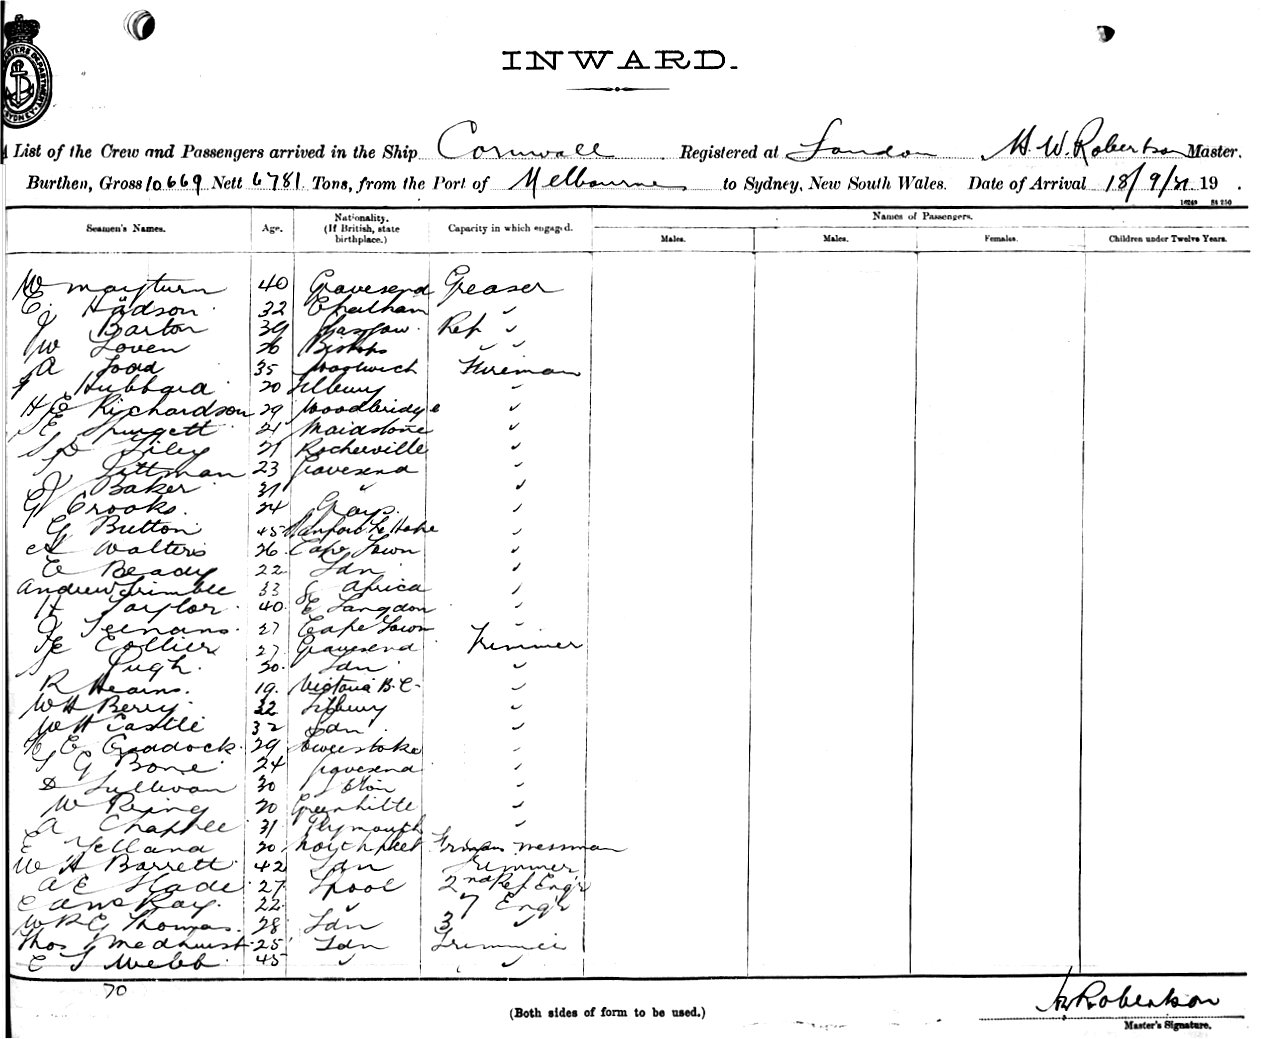 INWARD.
List of the Crew and Passengers arrived in the Ship Cornwall Registered at London H. W. Robertson Master.
Burthen, Gross 10669 Nett 6781 Tons, from the Port of Melbourne to Sydney, New South Wales. Date of Arrival 18/9/31 19 .
Seamen's Names. Age. Nationality. (If British, state birthplace.) Capacity in which engaged. Names of Passengers.
Males. Males. Females. Children under Twelve Years.
W 40 Gravesend Greaser
E. Hudson 32 Chatham "
J Barton 39 Glasgow Ref "
W Loven 26 " "
A Todd 35 Woolwich Fireman
F Hubbard 20 Tilbury "
H E Richardson 29 Woodbridge "
E Spurgett 21 Maidstone "
Liley 21 Rosherville "
Pittman 23 Gravesend "
J Baker 31 " "
G Crooks 24 Grays. "
G Button 45 Stanford Le Hope "
A Walters 26 Cape Town "
E Beady 22 Ldn "
Andrew Trimble 33 S Africa "
H Taylor 40 E Langdon "
J 27 Cape Town "
E Collier 27 Gravesend Trimmer
Pugh. 20 Ldn "
R Hearns. 19 Victoria B.C. "
W H Berry 22 Tilbury "
W H Castle 32 Ldn "
E Craddock 29 "
G Bone 24 Gravesend "
D Sullivan 30 "
W 20 Greenhithe "
A Chapple 31 Plymouth "
E Yelland 20 Northfleet Firemans messman
W H Barrett 42 Ldn Trimmer
A E Slade 27 Lpool 2nd Ref Eng'r
Ray. 22 " 7 Eng'r
W R G Thomas. 28 Ldn 3 "
Thos G Medhurst 25 Ldn Trimmer
E Webb 45 " "
70
(Both sides of form to be used.)
Robertson
Master's Signature.